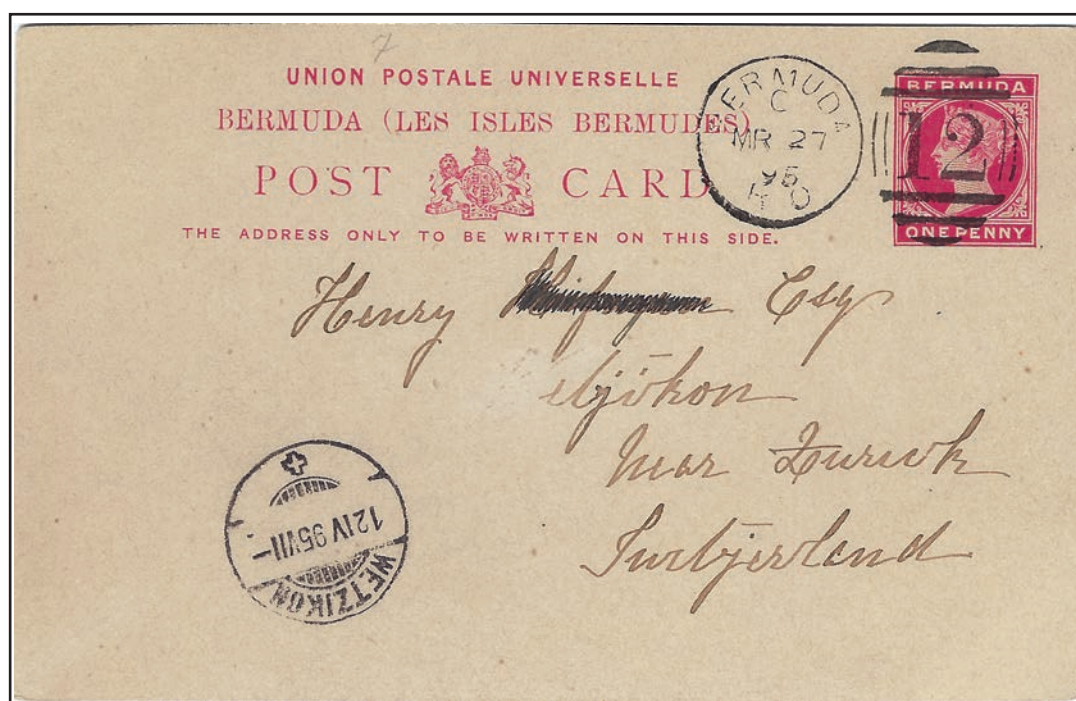 7
UNION POSTALE UNIVERSELLE
BERMUDA (LES ISLES BERMUDES)
POST CARD
THE ADDRESS ONLY TO BE WRITTEN ON THIS SIDE.
BERMUDA
C
MR 27
95
H O
12
BERMUDA
ONE PENNY
Henry Esq
near Zurich
Switzerland
12 IV 95 VII-
WETZIKON